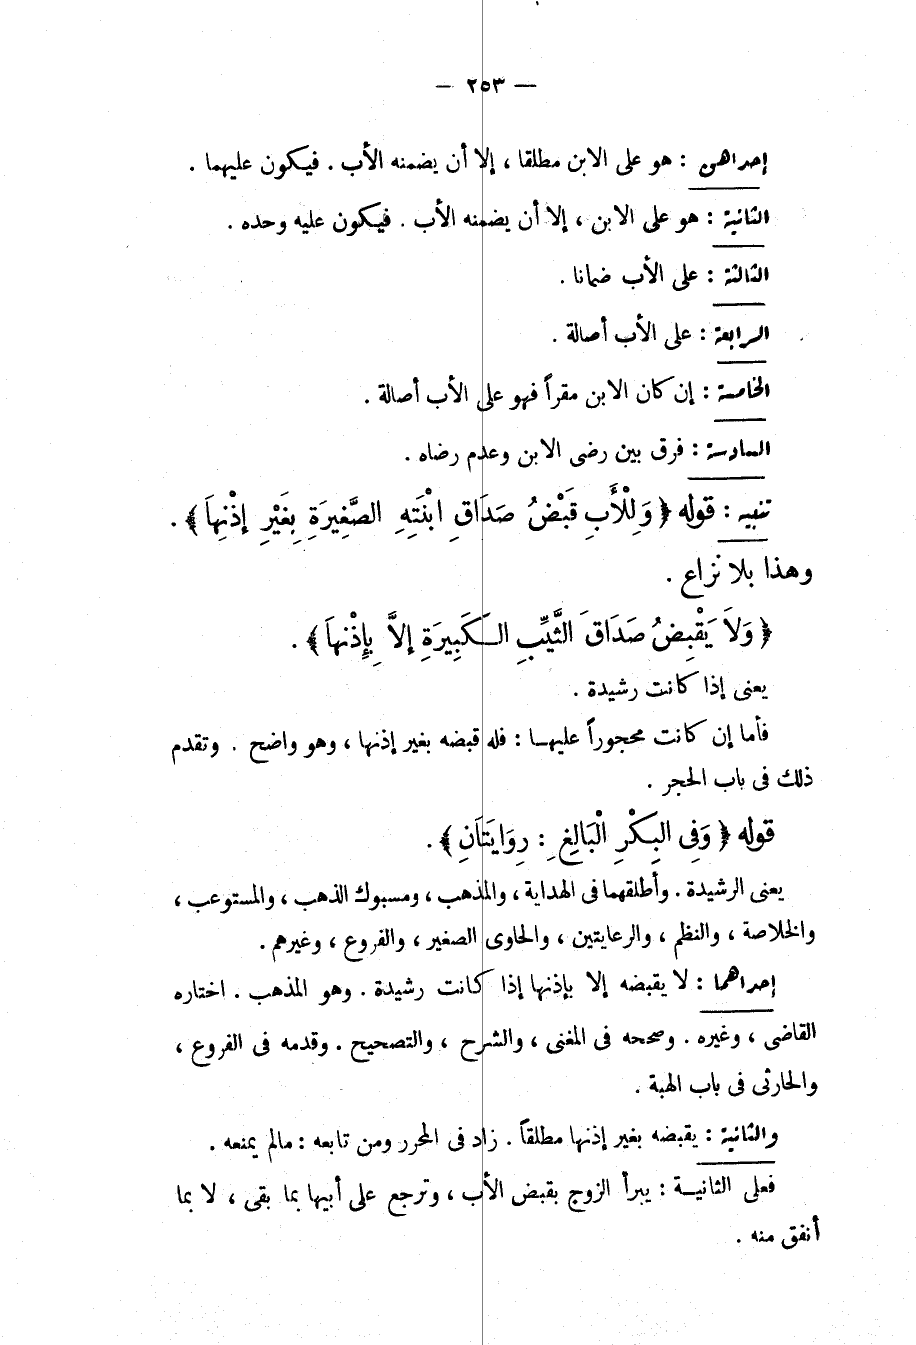 — ٢٥٣ —
إحداهن : هو على الابن مطلقا ، إلا أن يضمنه الأب . فيكون عليهما .
الثانية : هو على الابن ، إلا أن يضمنه الأب . فيكون عليه وحده .
الثالثة : على الأب ضمانا .
الرابعة : على الأب أصالة .
الخامسة : إن كان الابن مقراً فهو على الأب أصالة .
السادسة : فرق بين رضى الابن وعدم رضاه .
تنبيه : قوله ﴿ وَلِلْأَبِ قَبْضُ صَدَاقِ ابْنَتِهِ الصَّغِيرَةِ بِغَيْرِ إِذْنِهَا ﴾ .
وهذا بلا نزاع .
﴿ وَلَا يَقْبِضُ صَدَاقَ الثَّيِّبِ الكَبِيرَةِ إِلاَّ بِإِذْنِهَا ﴾ .
يعنى إذا كانت رشيدة .
فأما إن كانت محجوراً عليها : فله قبضه بغير إذنها ، وهو واضح . وتقدم
ذلك فى باب الحجر .
قوله ﴿ وَفِى البِكْرِ الْبَالِغِ : رِوَايَتَانِ ﴾ .
يعنى الرشيدة . وأطلقهما فى الهداية ، والمذهب ، ومسبوك الذهب ، والمستوعب ،
والخلاصة ، والنظم ، والرعايتين ، والحاوى الصغير ، والفروع ، وغيرهم .
إحداهما : لا يقبضه إلا بإذنها إذا كانت رشيدة . وهو المذهب . اختاره
القاضى ، وغيره . وصححه فى المغنى ، والشرح ، والتصحيح . وقدمه فى الفروع ،
والحارثى فى باب الهبة .
والثانية : يقبضه بغير إذنها مطلقاً . زاد فى المحرر ومن تابعه : مالم يمنعه .
فعلى الثانية : يبرأ الزوج بقبض الأب ، وترجع على أبيها بما بقى ، لا بما
أنفق منه .